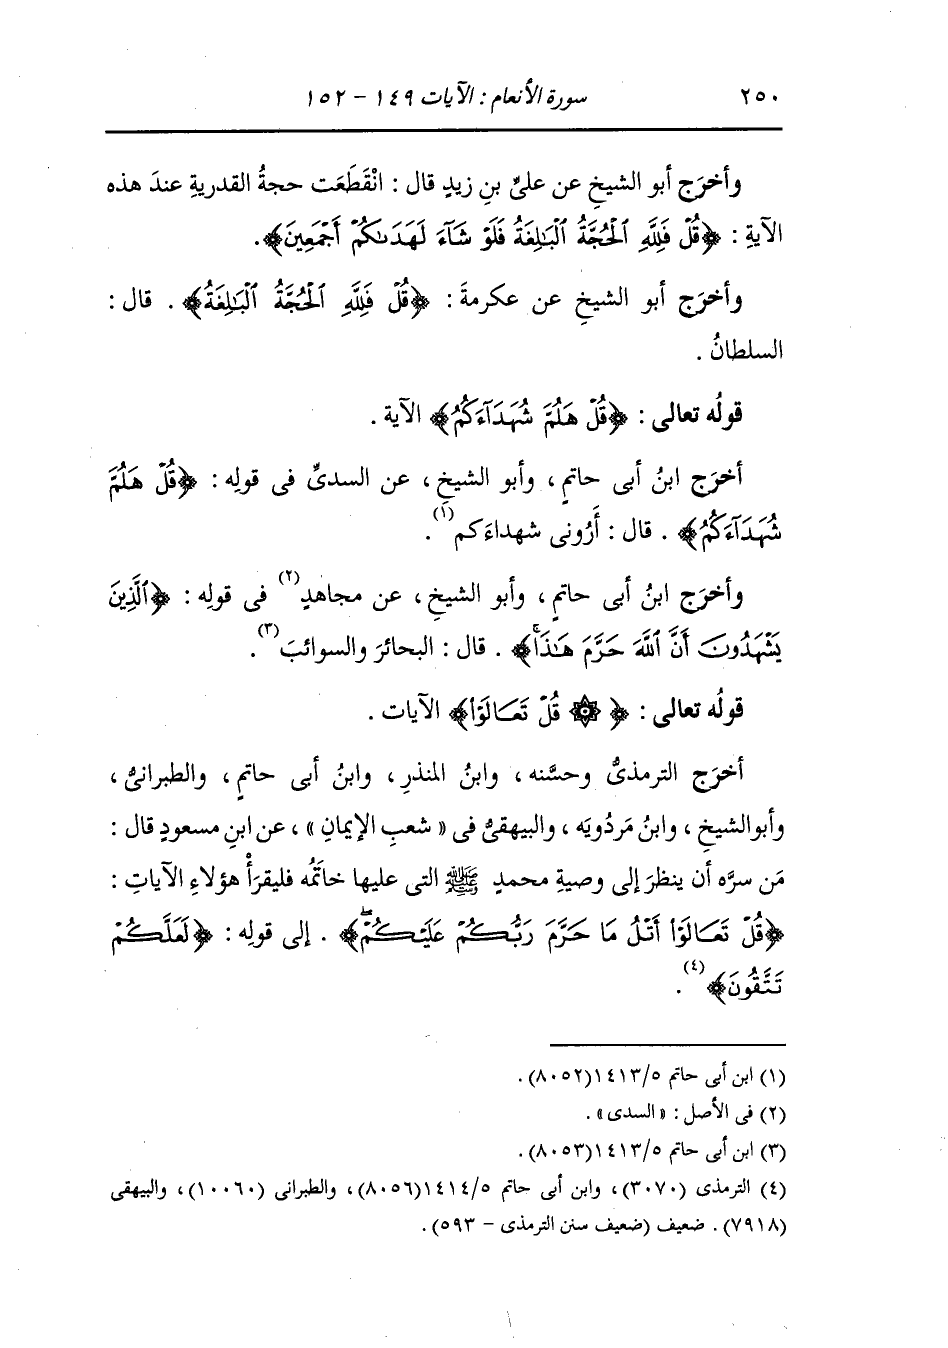 ٢٥٠ سورة الأنعام : الآيات ١٤٩ - ١٥٢
وأخرَج أبو الشيخِ عن علىِّ بنِ زيدٍ قال : انْقَطَعَت حجةُ القدريةِ عندَ هذه
الآيةِ : ﴿قُلْ فَلِلَّهِ ٱلْحُجَّةُ ٱلْبَـٰلِغَةُ فَلَوْ شَآءَ لَهَدَىٰكُمْ أَجْمَعِينَ﴾.
وأخرَج أبو الشيخِ عن عكرمةَ : ﴿قُلْ فَلِلَّهِ ٱلْحُجَّةُ ٱلْبَـٰلِغَةُ﴾ . قال :
السلطانُ .
قولُه تعالى : ﴿قُلْ هَلُمَّ شُهَدَآءَكُمُ﴾ الآية .
أخرَج ابنُ أبى حاتمٍ ، وأبو الشيخِ ، عن السدىِّ فى قولِه : ﴿قُلْ هَلُمَّ
شُهَدَآءَكُمُ﴾ . قال : أَرُونى شهداءَكم(١) .
وأخرَج ابنُ أبى حاتمٍ ، وأبو الشيخِ ، عن مجاهدٍ(٢) فى قولِه : ﴿ٱلَّذِينَ
يَشْهَدُونَ أَنَّ ٱللَّهَ حَرَّمَ هَـٰذَاۖ﴾ . قال : البحائرَ والسوائبَ(٣) .
قولُه تعالى : ﴿۞ قُلْ تَعَالَوْاْ﴾ الآيات .
أخرَج الترمذىُّ وحسَّنه ، وابنُ المنذرِ ، وابنُ أبى حاتمٍ ، والطبرانىُّ ،
وأبوالشيخِ ، وابنُ مَردُويَه ، والبيهقىُّ فى « شعبِ الإيمانِ » ، عن ابنِ مسعودٍ قال :
مَن سرَّه أن ينظرَ إلى وصيةِ محمدٍ ﷺ التى عليها خاتَمُه فليقرَأْ هؤلاءِ الآياتِ :
﴿قُلْ تَعَالَوْاْ أَتْلُ مَا حَرَّمَ رَبُّكُمْ عَلَيْكُمْۖ﴾ . إلى قولِه : ﴿لَعَلَّكُمْ
تَتَّقُونَ﴾(٤) .
(١) ابن أبى حاتم ١٤١٣/٥ (٨٠٥٢) .
(٢) فى الأصل : « السدى » .
(٣) ابن أبى حاتم ١٤١٣/٥ (٨٠٥٣) .
(٤) الترمذى (٣٠٧٠) ، وابن أبى حاتم ١٤١٤/٥ (٨٠٥٦) ، والطبرانى (١٠٠٦٠) ، والبيهقى
(٧٩١٨) . ضعيف (ضعيف سنن الترمذى - ٥٩٣) .